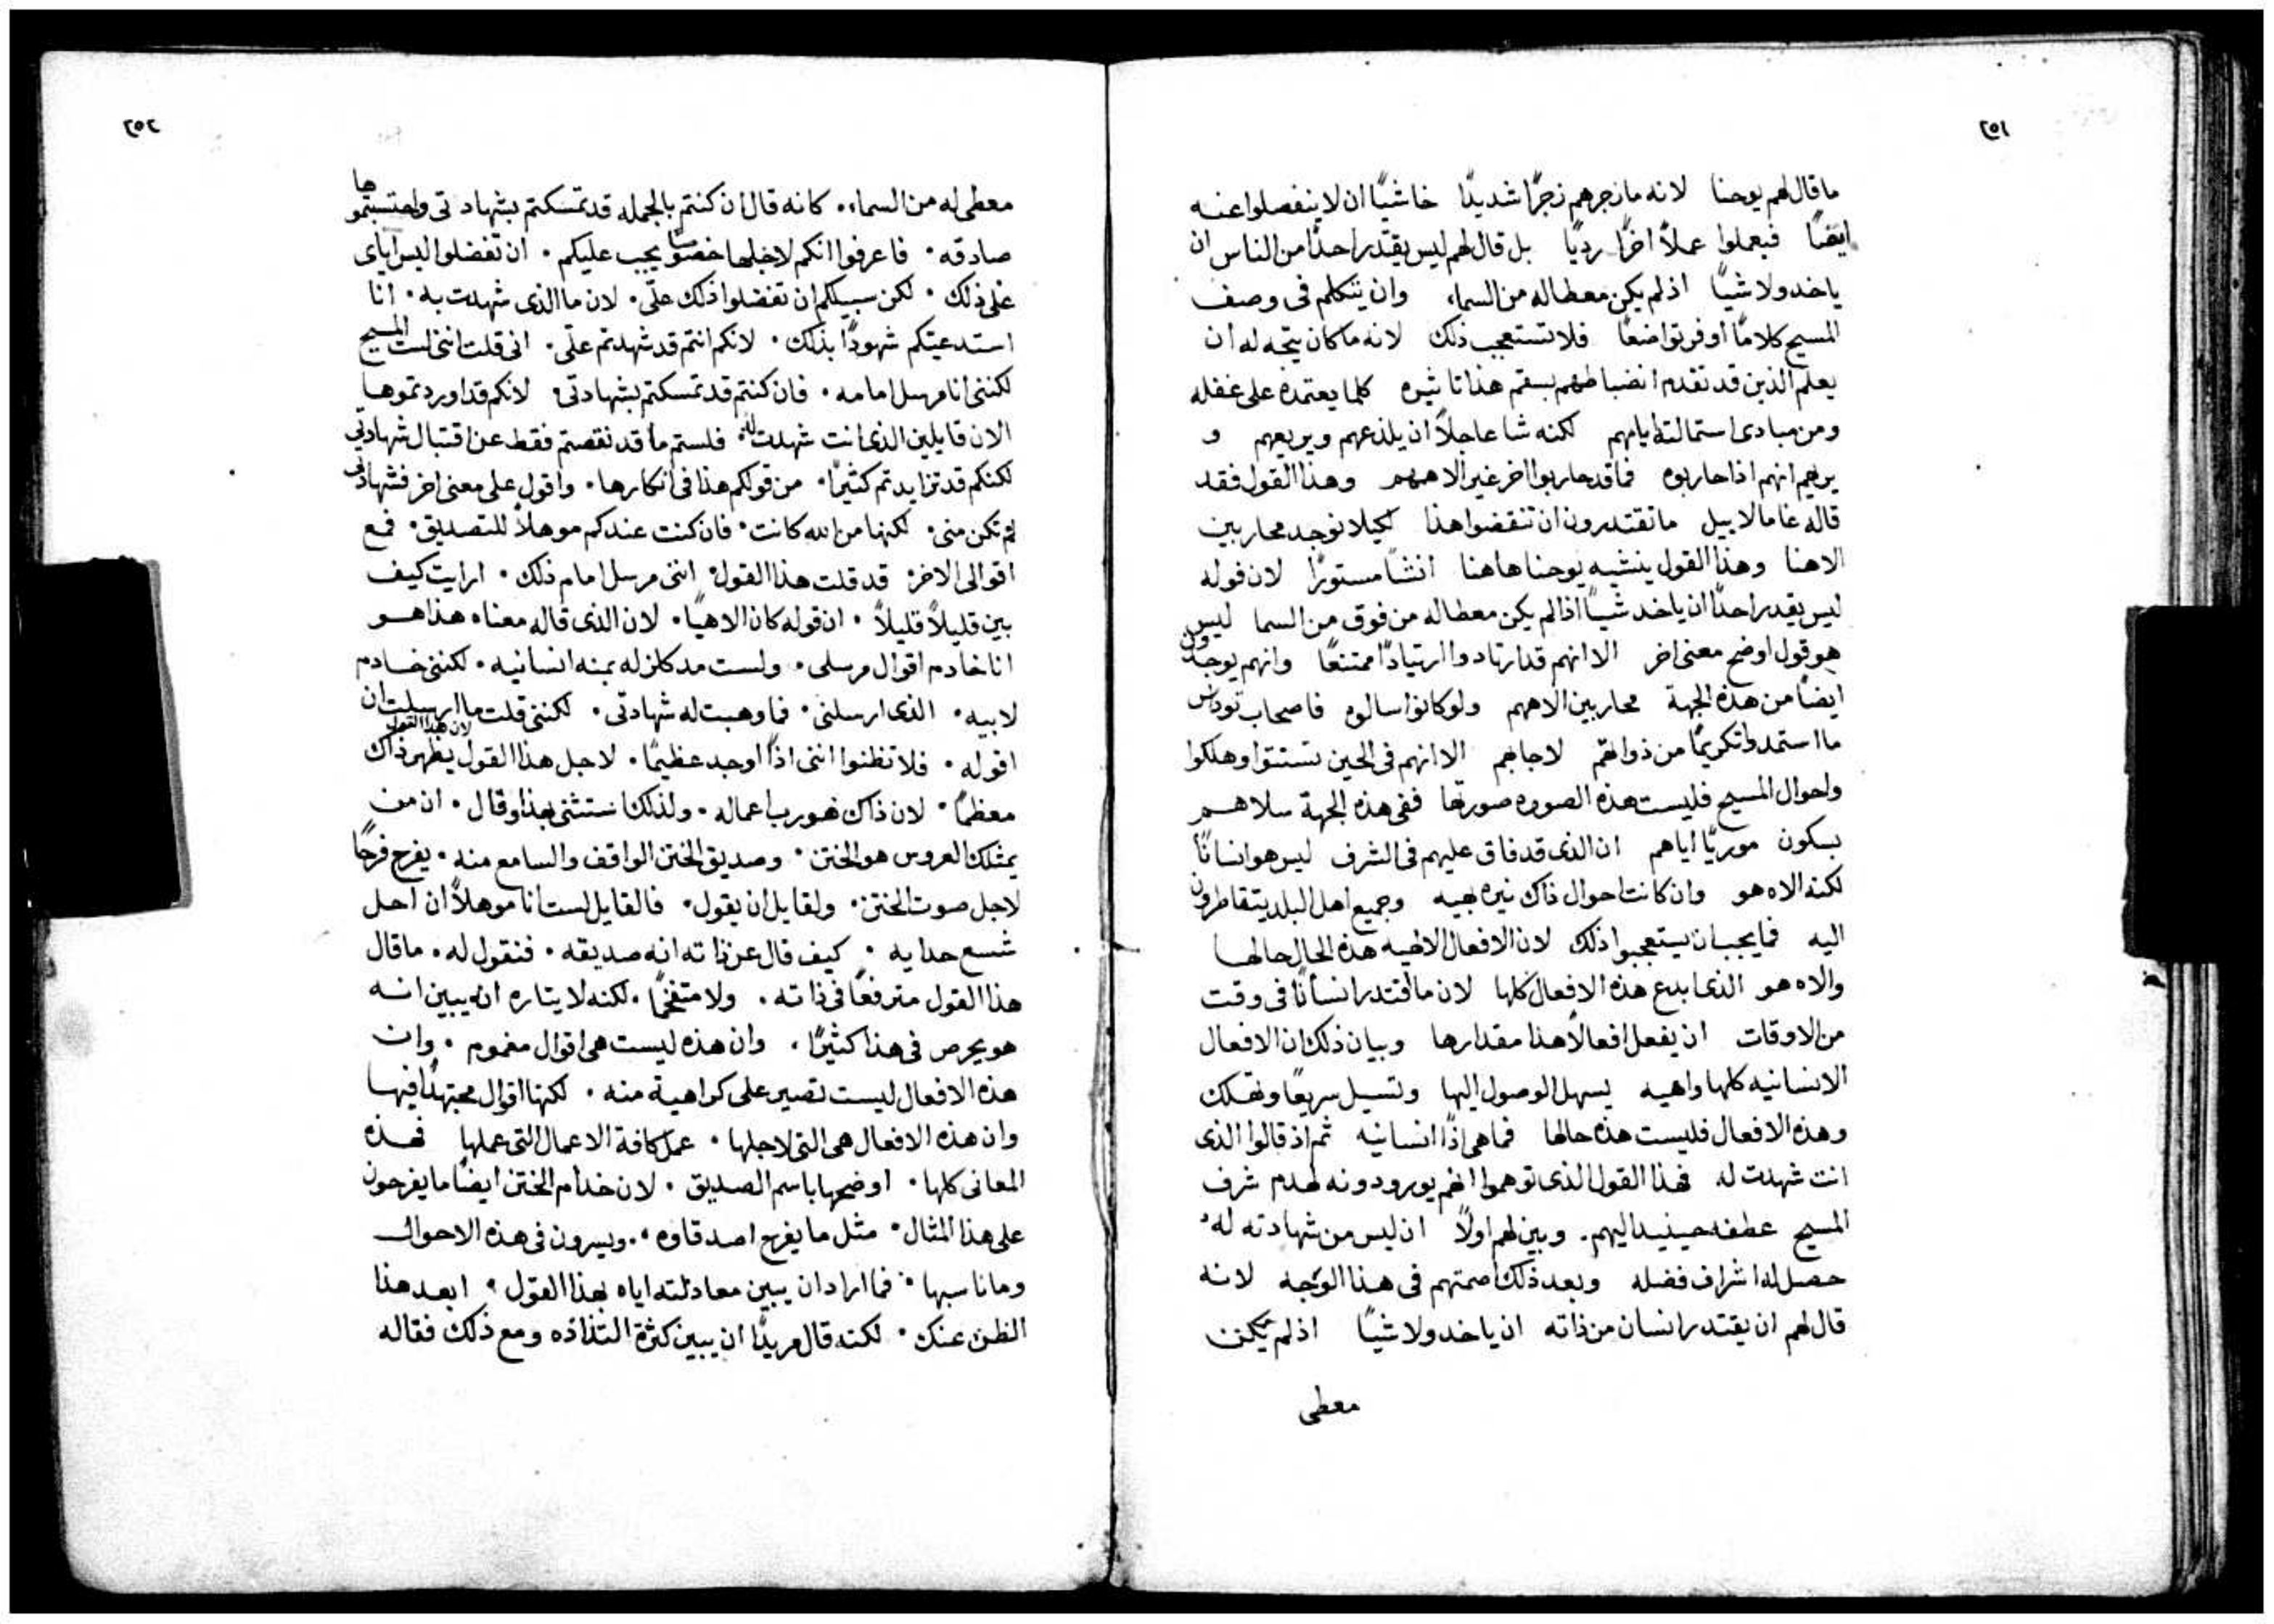 ٢٥١
ما قال لهم يوحنا لانه ما زجرهم زجرًا شديدًا خاشيًا ان لا ينفصلوا عنه
ايضًا فيعملوا عملاً اخرًا رديًا بل قال لهم ليس يقتدر احدًا من الناس ان
ياخد ولا شيًا اذ لم يكن معطا له من السماء وان يتكلم فى وصف
المسيح كلامًا اوفر تواضعًا فلا تستعجب ذلك لانه ما كان يتجه له ان
يعلم الذين قد تقدم انضباطهم بسقم هذا تاثيره كلما يعتمده على غفله
ومن مبادى استمالته اياهم لكنه شا عاجلاً ان يلذعهم ويريعهم و
يريهم انهم اذا حاربوه فما قد حاربوا اخر غير الاههم وهذا القول فقد
قاله غامالاييل ما تقتدرون ان تنقضوا هذا لكيلا نوجد محاربين
الاهنا وهذا القول ينشيه يوحنا هاهنا انشًا مستورًا لان قوله
ليس يقدر احدًا ان ياخد شيًا اذا لم يكن معطا له من فوق من السما ليس
هو قول اوضح معنى اخر الا انهم قد ارتادوا ارتيادًا ممتنعًا وانهم يوجدون
ايضًا من هذه الجهة محاربين الاههم ولو كانوا سالوه فاصحاب توداس
ما استمدوا تكريمًا من ذواتهم لاجابهم الا انهم فى الحين تستتوا وهلكوا
واحوال المسيح فليست هذه الصوره صورتها ففى هذه الجهة سلاهم
بسكون موريًا اياهم ان الذى قد فاق عليهم فى الشرف ليس هو انسانًا
لكنه الاه هو وان كانت احوال ذاك نيره بهيه وجميع اهل البلد يتقاطرون
اليه فما يجب ان يستعجبوا ذلك لان الافعال الالهيه هذه الحال حالها
والاه هو الذى ابدع هذه الافعال كلها لان ما اقتدر انسانًا فى وقت
من الاوقات ان يفعل افعالاً هذا مقدارها وبيان ذلك ان الافعال
الانسانيه كلها واهيه يسهل الوصول اليها وتسيل سريعًا وتهلك
وهذه الافعال فليست هذه حالها فما هى اذًا انسانيه ثم اذ قالوا الذى
انت شهدت له فهذا القول الذى توهموا انهم يوردونه لهدم شرف
المسيح عطفه حينيد اليهم. وبين لهم اولاً ان ليس من شهادته له
حصل له اشراف فضله وبعد ذلك اصمتهم فى هذا الوجه لانه
قال لهم ان يقتدر انسان من ذاته ان ياخد ولا شيًا اذ لم يكن
معطى
٢٥٢
معطى له من السماء. كانه قال ان كنتم بالجمله قد تمسكتم بشهادتى واحتسبتموها
صادقه. فاعرفوا انكم لاجلها خصوصًا يجب عليكم. ان تفضلوا ليس اياى
على ذلك. لكن سبيلكم ان تفضلوا ذلك علىّ. لان ما الذى شهدت به. انا
استدعيتكم شهودًا بذلك. لانكم انتم قد شهدتم علىّ. انى قلت اننى لست المسيح
لكننى انا مرسل امامه. فان كنتم قد تمسكتم بشهادتى. لانكم قد اوردتموها
الان قايلين الذى انت شهدت له. فلستم ما قد نقصتم فقط عن اقتبال شهادتى
لكنكم قد تزايدتم كثيرًا. من قولكم هذا فى انكارها. واقول على معنى اخر فشهادتى
لم تكن منى. لكنها من الله كانت. فان كنت عندكم موهلاً للتصديق. فمع
اقوالى الاخره قد قلت هذا القول. اننى مرسل امام ذلك. ارايت كيف
بين قليلاً قليلاً. ان قوله كان الاهيًا. لان الذى قاله معناه هذا هو
انا خادم اقوال مرسلى. ولست مدكلزله بمنه انسانيه. لكننى خادم
لابيه. الذى ارسلنى. فما وهبت له شهادتى. لكننى قلت ما ارسلت ان
اقوله. فلا تظنوا اننى اذًا اوجد عظيمًا. لاجل هذا القول لان هذا القول يظهر ذاك
معظمًا. لان ذاك هو رب اعماله. ولذلك استثنى بهذا وقال. ان من
يمتلك العروس هو الختن. وصديق الختن الواقف والسامع منه. يفرح فرحًا
لاجل صوت الختن. ولقايل ان يقول. فالقايل لست انا موهلاً ان احل
شسع حدايه. كيف قال عن ذاته انه صديقه. فنقول له. ما قال
هذا القول مترفعًا فى ذاته. ولا متفخمًا. لكنه لايتاره ان يبين انه
هو يحرص فى هذا كثيرًا. وان هذه ليست هى اقوال مغموم. وان
هذه الافعال ليست تصير على كراهية منه. لكنها اقوال مجتهدًا فيها
وان هذه الافعال هى التى لاجلها. عمل كافة الاعمال التى عملها فهذه
المعانى كلها. اوضحها باسم الصديق. لان خدام الختن ايضًا ما يفرحون
على هذا المثال. مثل ما يفرح اصدقاوه. ويسرون فى هذه الاحوال
وما ناسبها. فما اراد ان يبين معادلته اياه بهذا القول. ابعد هذا
الظن عنك. لكنه قال مريدًا ان يبين كثرة التذاذه ومع ذلك فقاله